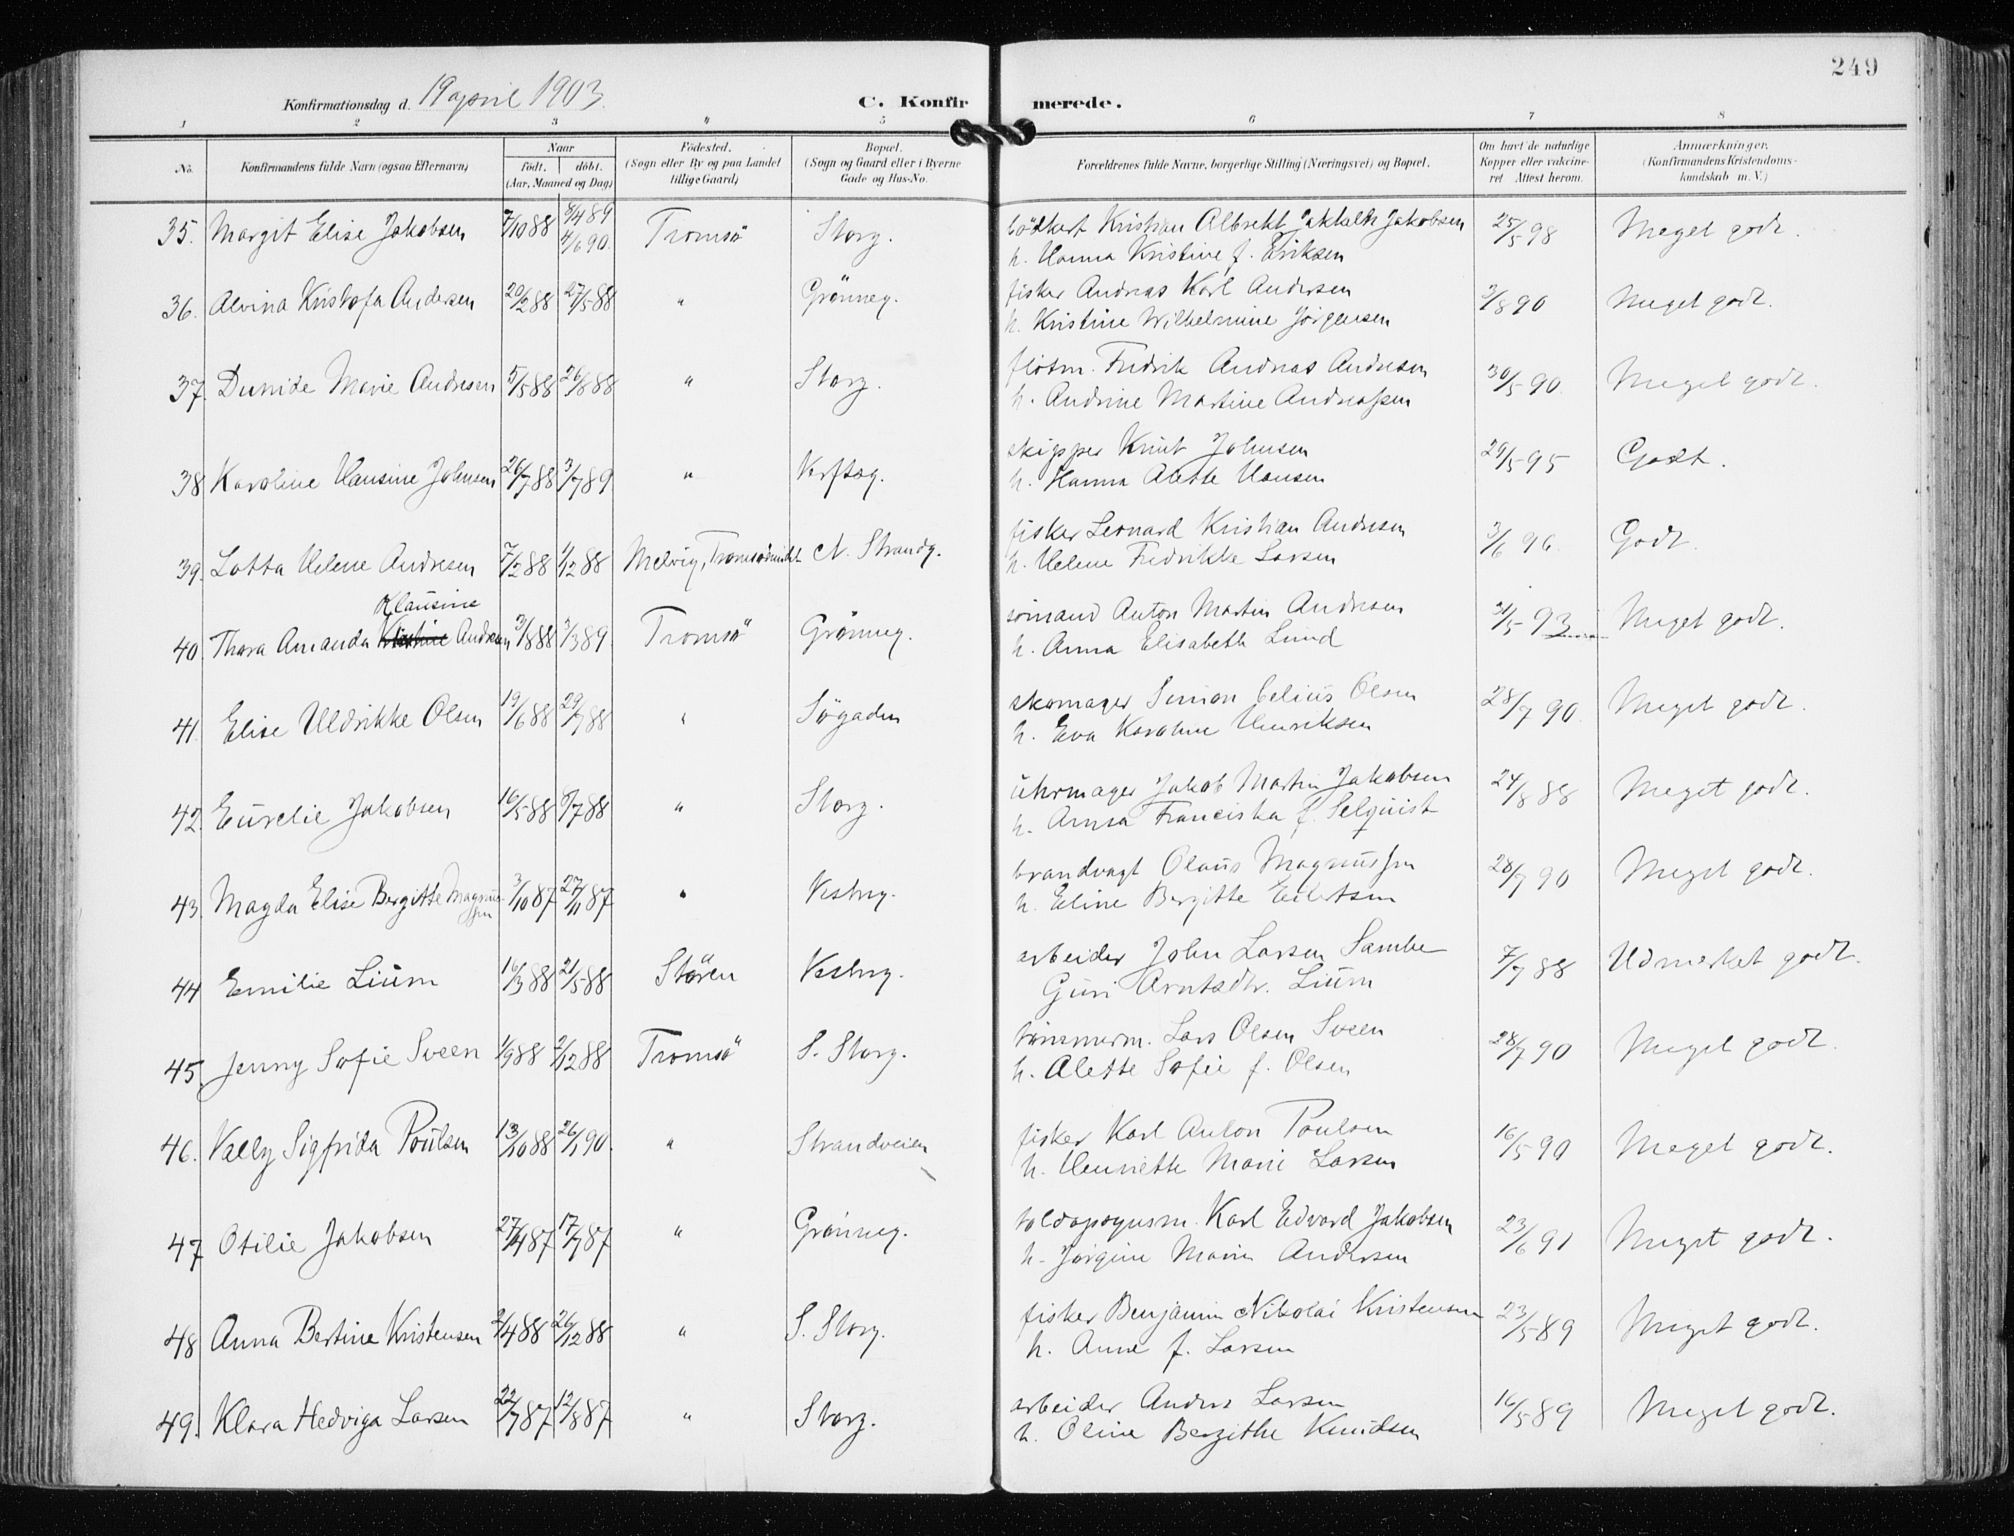 249
Konfirmationsdag d. 19 april 1903.
C. Konfirmerede.
1 2 3 " 5 6 7 8
No. Konfirmandens fulde Navn (ogsaa Efternavn) Naar født. døbt. (Aar, Maaned og Dag) Fødested. (Sogn eller By og paa Landet tillige Gaard) Bopæl. (Sogn og Gaard eller i Byerne Gade og Hus-No. Forældrenes fulde Navne, borgerlige Stilling (Næringsvei) og Bopæl. Om havt de naturlige Kopper eller vakcineret Attest herom. Anmærkninger. (Konfirmandens Kristendomskundskab m. V.)
35. Margit Elise Jakobsen 7/10 88 4/4 89 4/6 90. Tromsö Storg. Kristian Albrekt Jakobsen 25/5 98 Meget godt.
h. Hanna Kristine f. Eriksen
36. Alvina Kristofa Andersen 20/2 88 27/5 88 " Grönneg. fisker Andreas Karl Andersen 3/8 90 Meget godt.
h. Kristine Wilhelmine Jörgensen
37. Marie Andresen 5/5 88 26/8 88 " Storg. flotm. Fredrik Andreas Andresen 30/5 90. Meget godt.
h. Andrine Martine Andreassen
38. Karoline Hansine Johnsen 26/7 88 3/7 89 " Verftsg. skipper Knut Johnsen 29/5 95 Godt.
h. Hanna Alette Hansen
39. Lotta Helene Andresen 7/2 88 1/12 88 Melvig, N. Strandg. fisker Leonard Kristian Andresen 3/6 96. Godt.
h. Helene Fredrikke Larsen
Klausine
40. Thora Amanda Andresen 3/8 88 3/3 89. Tromsö Grönneg. sömand Anton Martin Andresen 31/5 93 Meget godt.
h. Anna Elisabeth Lund
41. Elise Uldrikke Olsen 19/6 88 29/7 88 " Sögaden skomager Simon Celius Olsen 28/7 90. Meget godt.
h. Eva Karoline Henriksen
42. Eurelie Jakobsen 16/5 88 8/7 88 " Storg. uhrmager Jakob Martin Jakobsen 24/8 88 Meget godt.
h. Anna Franciska f. Selquist
43. Magda Elise Bergitte Magnussen 3/10 87 27/11 87 " Vestreg. brandvagt Olaus Magnussen 28/7 90 Meget godt.
h. Eline Bergitte Eilertsen
44. Emilie Lium 16/3 88 21/5 88 Stören Vestreg. arbeider John Larsen Sambe 7/7 88 Udmerket godt.
Guri Arntsdtr. Lium
45. Jenny Sofie Sveen 1/9 88 2/12 88 Tromsö S. Storg. tömmerm. Lars Olsen Sveen 28/7 90 Meget godt.
h. Alette Sofie f. Olsen
46. Vally Sigfrida Poulsen 13/10 88 26/1 90. " Strandveien fisker Karl Anton Poulsen 16/5 90 Meget godt.
h. Henriette Marie Larsen
47. Otilie Jakobsen 27/4 87 17/7 87 " Grönneg. Karl Edvard Jakobsen 23/6 91 Meget godt.
h. Jörgine Marie Andersen
48. Anna Bertine Kristensen 2/4 88 26/12 88 " S. Storg. fisker Benjamin Nikolai Kristensen 23/5 89 Meget godt.
h. Anne f. Larsen
49. Klara Hedviga Larsen 22/7 87 12/8 87 " Storg. arbeider Anders Larsen 16/5 89 Meget godt.
h. Oline Bergithe Knudsen